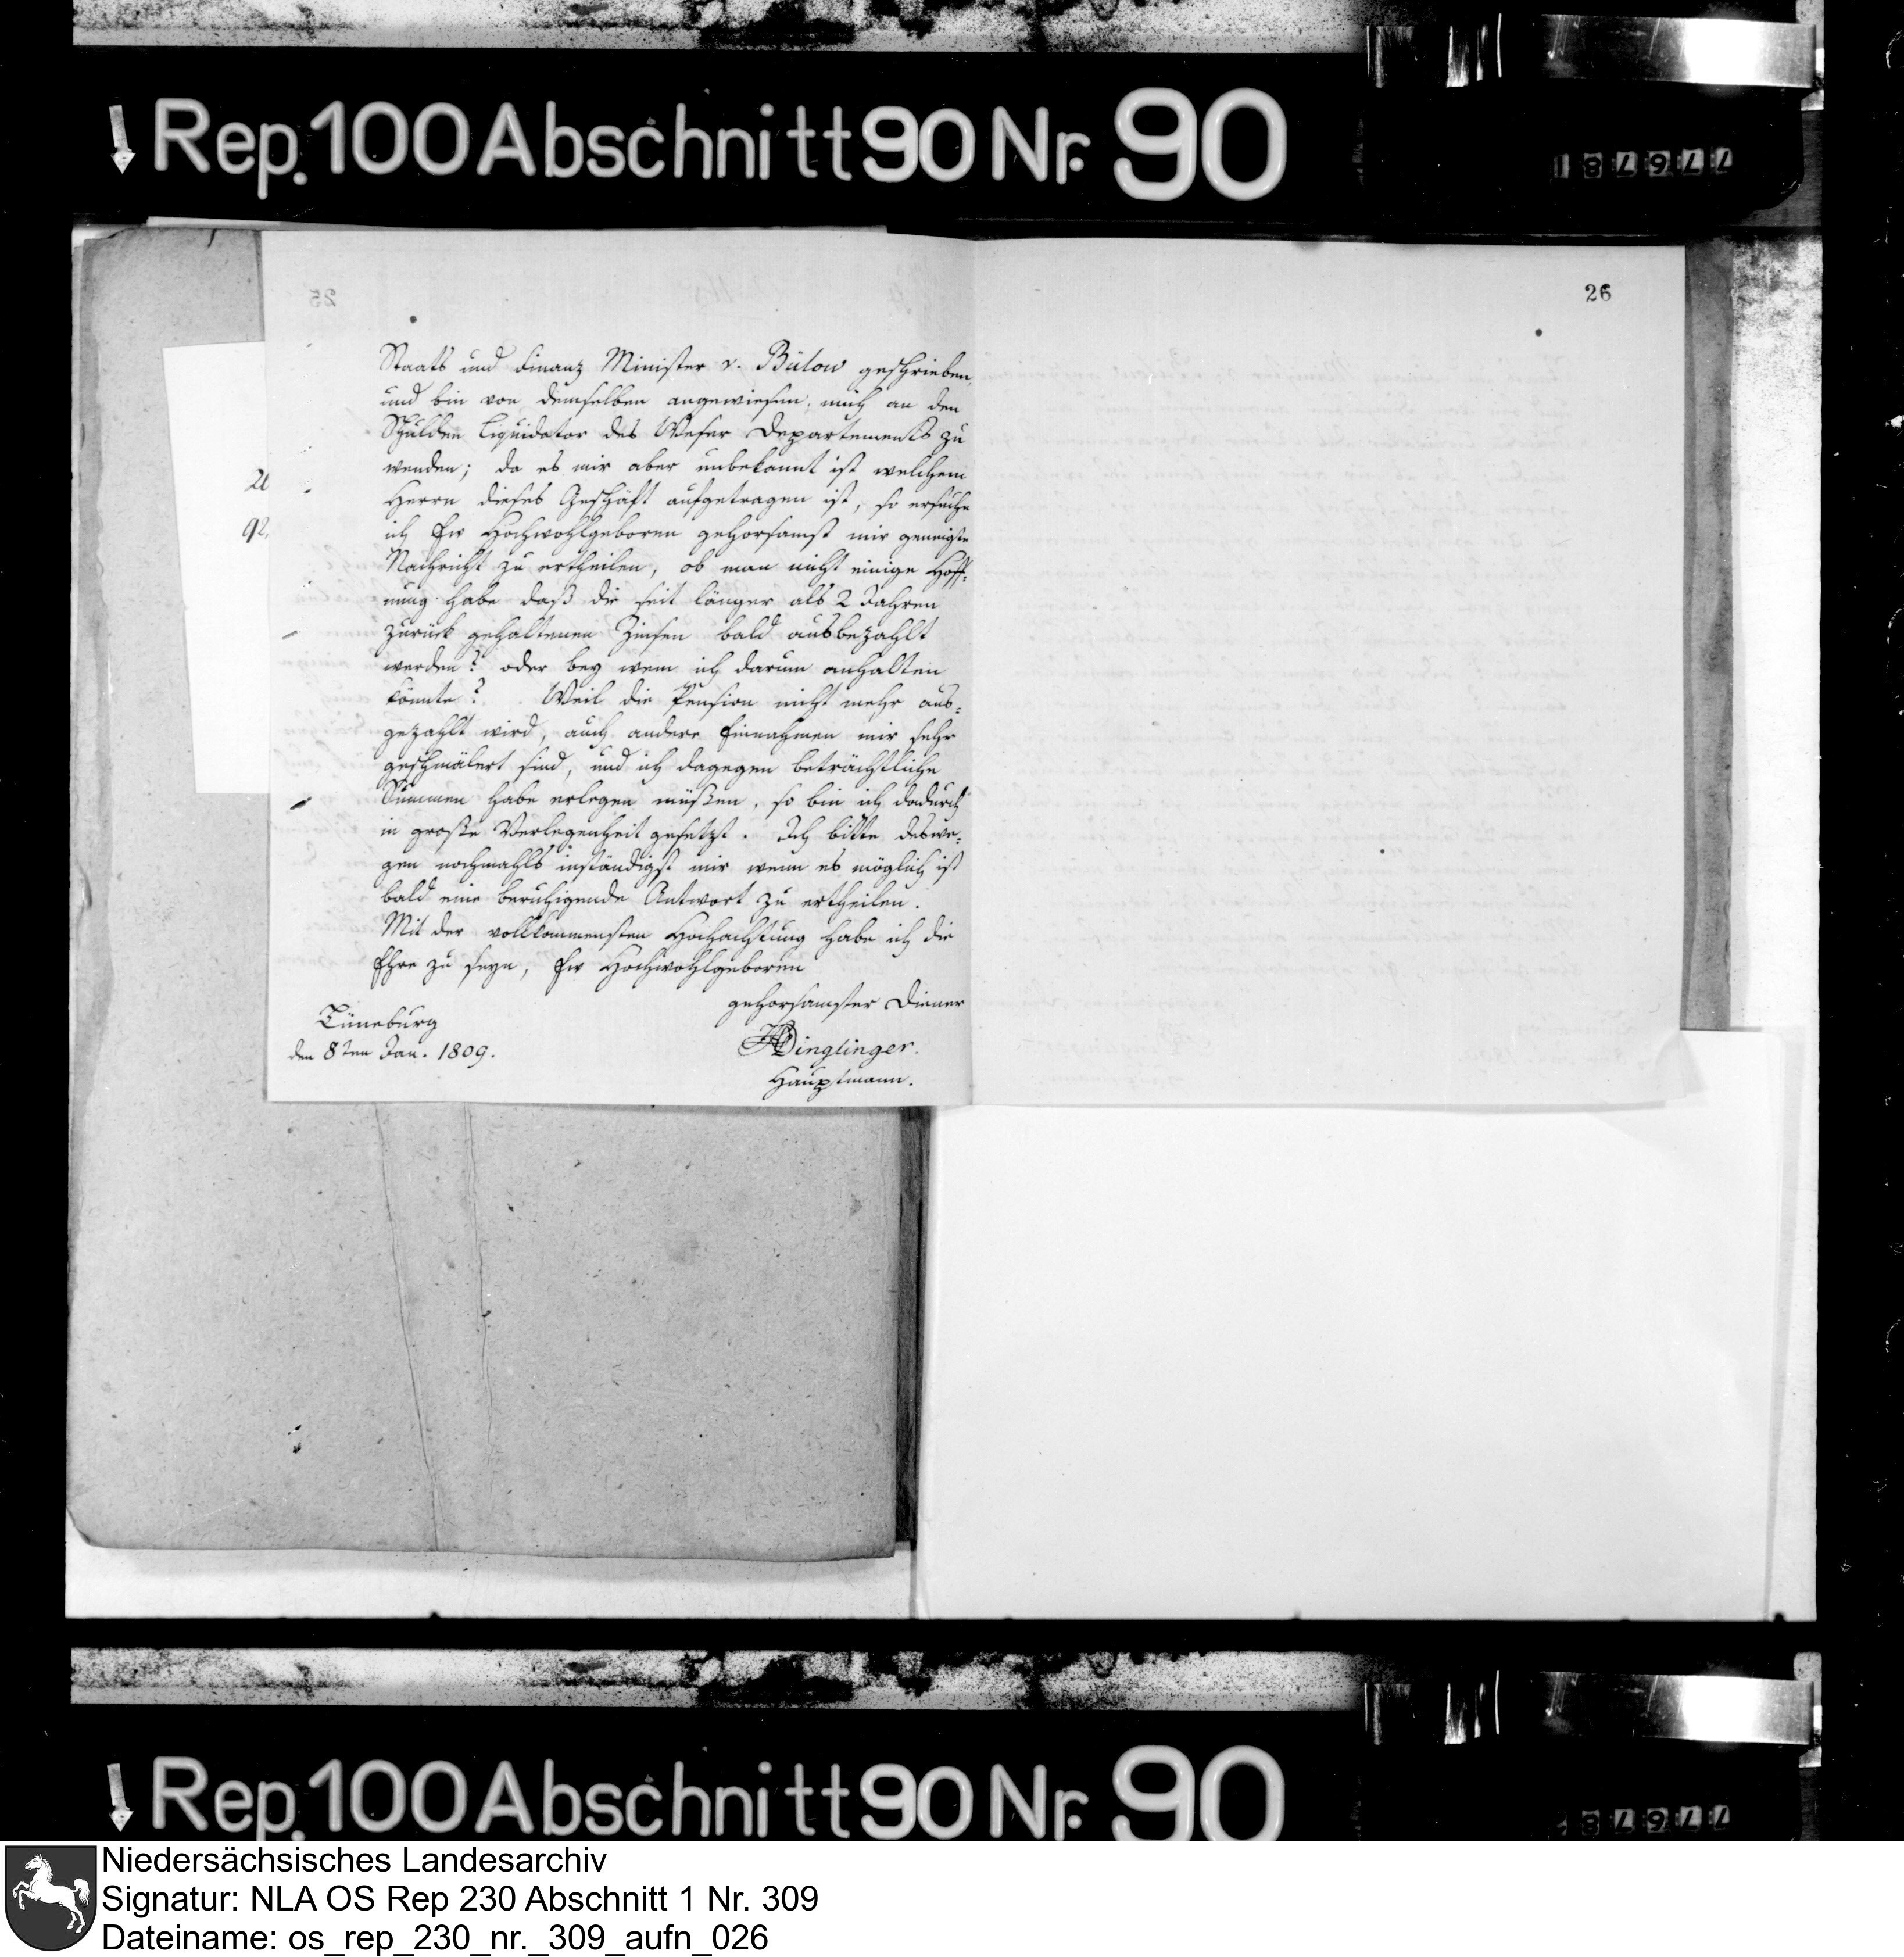 Rep. 100 Abschnitt 90 Nr. 90
77678
25
26
Staats und Finanz Minister v. Bülow geschrieben,
und bin von demselben angewiesen, mich an den
Schulden Liquidator des Weser Departements zu
wenden; da es mir aber unbekannt ist welchem
Herrn dieses Geschäft aufgetragen ist, so ersuche
ich Ew Hochwohlgeboren gehorsamst mir geneigte
Nachricht zu ertheilen, ob man nicht einige Hoff-
nung habe daß die seit länger als 2 Jahren
zurück gehaltenen Zinsen bald ausbezahlt
werden? oder bey wem ich darum anhalten
könnte? Weil die Pension nicht mehr aus-
gezahlt wird, auch andere Einnahmen mir sehr
geschmälert sind, und ich dagegen beträchtliche
Summen habe erlegen müßen, so bin ich dadurch
in große Verlegenheit gesetzt. Ich bitte deswe-
gen nochmahls inständigst mir wenn es möglich ist
bald eine beruhigende Antwort zu ertheilen.
Mit der vollkommensten Hochachtung habe ich die
Ehre zu seyn, Ew Hochwohlgeboren
gehorsamster Diener
Lüneburg
den 8ten Jan. 1809.
Dinglinger.
Hauptmann.
Rep. 100 Abschnitt 90 Nr. 90
Niedersächsisches Landesarchiv
Signatur: NLA OS Rep 230 Abschnitt 1 Nr. 309
Dateiname: os_rep_230_nr._309_aufn_026